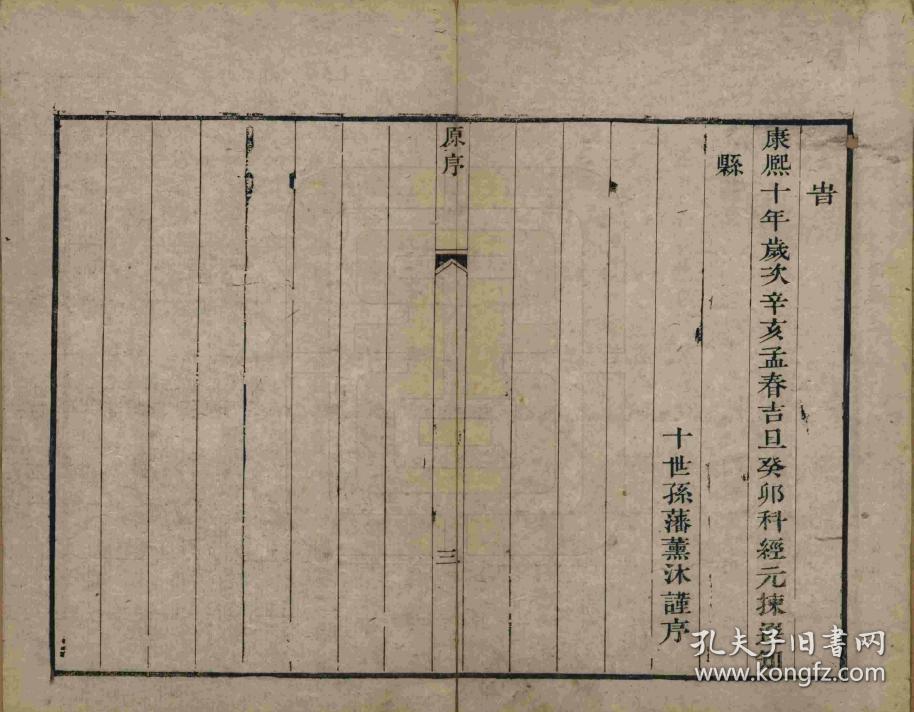 旹
康熈十年歲次辛亥孟春吉旦癸卯科經元揀選知
縣
十世孫藩薰沐謹序
原序
三
孔夫子旧书网
www.kongfz.com